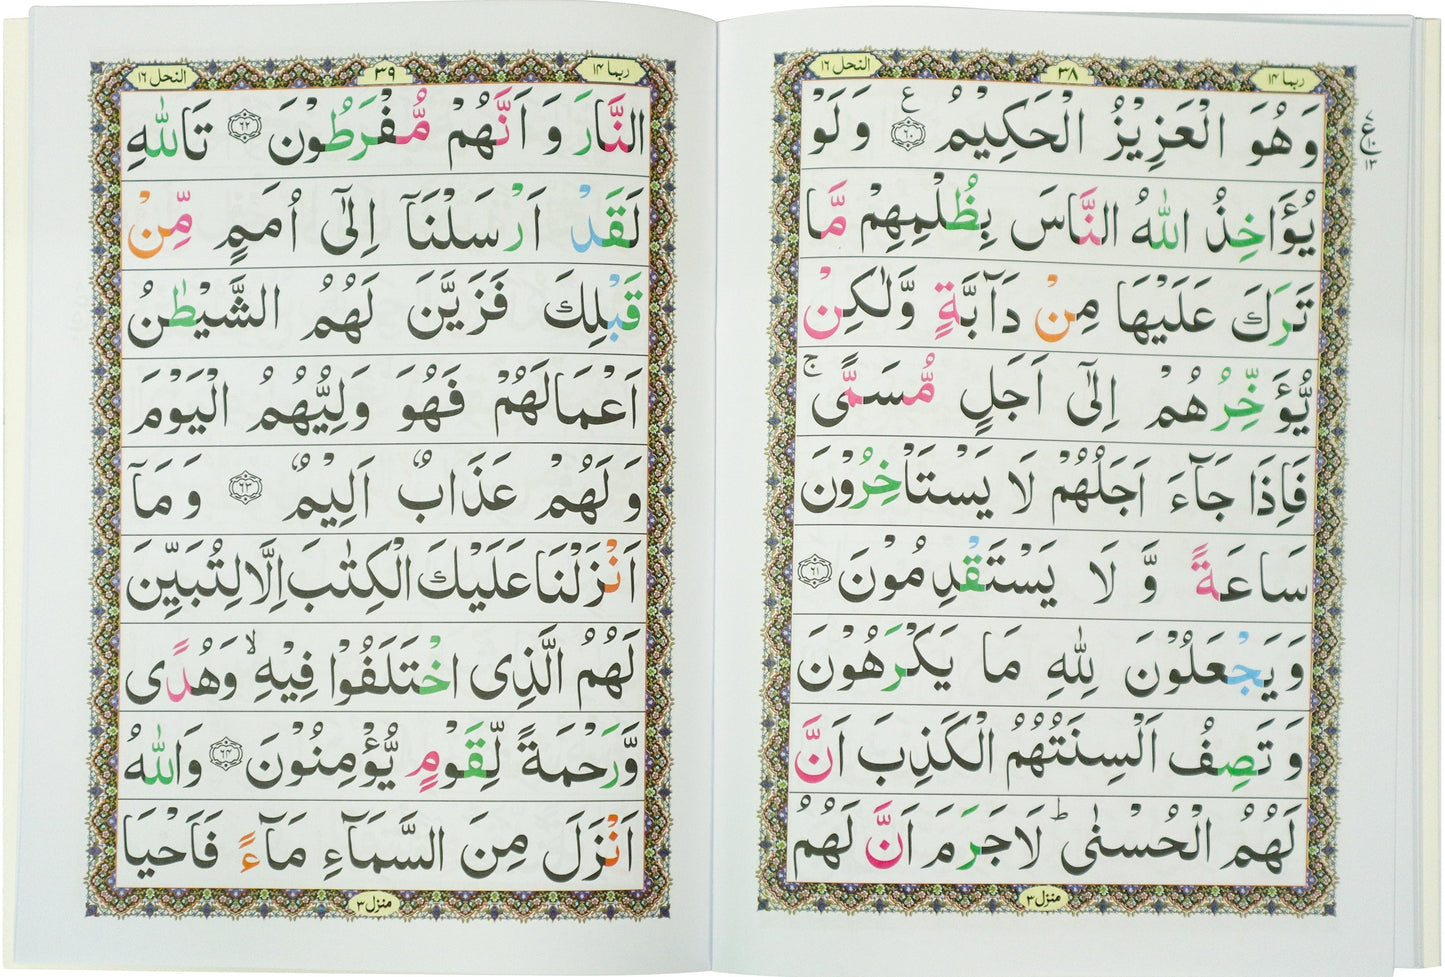 ربما ۱۴ ۳۸ النحل ۱۶
وَهُوَ الْعَزِيْزُ الْحَكِيْمُ ۶۰ ع وَلَوْ
يُؤَاخِذُ اللّٰهُ النَّاسَ بِظُلْمِهِمْ مَّا
تَرَكَ عَلَيْهَا مِنْ دَآبَّةٍ وَّلٰكِنْ
يُّؤَخِّرُهُمْ اِلٰٓى اَجَلٍ مُّسَمًّى ۚ
فَاِذَا جَآءَ اَجَلُهُمْ لَا يَسْتَاْخِرُوْنَ
سَاعَةً وَّ لَا يَسْتَقْدِمُوْنَ ۶۱
وَ يَجْعَلُوْنَ لِلّٰهِ مَا يَكْرَهُوْنَ
وَ تَصِفُ اَلْسِنَتُهُمُ الْكَذِبَ اَنَّ
لَهُمُ الْحُسْنٰى ؕ لَاجَرَمَ اَنَّ لَهُمُ
منزل ۳
ع ۱۰ ۱۳
ربما ۱۴ ۳۹ النحل ۱۶
النَّارَ وَ اَنَّهُمْ مُّفْرَطُوْنَ ۶۲ تَاللّٰهِ
لَقَدْ اَرْسَلْنَآ اِلٰٓى اُمَمٍ مِّنْ
قَبْلِكَ فَزَيَّنَ لَهُمُ الشَّيْطٰنُ
اَعْمَالَهُمْ فَهُوَ وَلِيُّهُمُ الْيَوْمَ
وَ لَهُمْ عَذَابٌ اَلِيْمٌ ۶۳ وَ مَآ
اَنْزَلْنَا عَلَيْكَ الْكِتٰبَ اِلَّا لِتُبَيِّنَ
لَهُمُ الَّذِى اخْتَلَفُوْا فِيْهِ ۙ وَهُدًى
وَّرَحْمَةً لِّقَوْمٍ يُّؤْمِنُوْنَ ۶۴ وَاللّٰهُ
اَنْزَلَ مِنَ السَّمَآءِ مَآءً فَاَحْيَا
منزل ۳